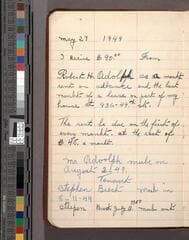 may 27 1949
I recive $ 90.00 From
Robert H. Adolph as a month
rent in advance and the last
month of a lease in part of my
house at 936-49th st.
The rent be due on the first of
every month. at the rate of
$ 45. a month.
Mr Adolph mube on
August 2, 49
Tenant
Stephen Bisch mut in
8-11-49
Stepen Bisch July mube out